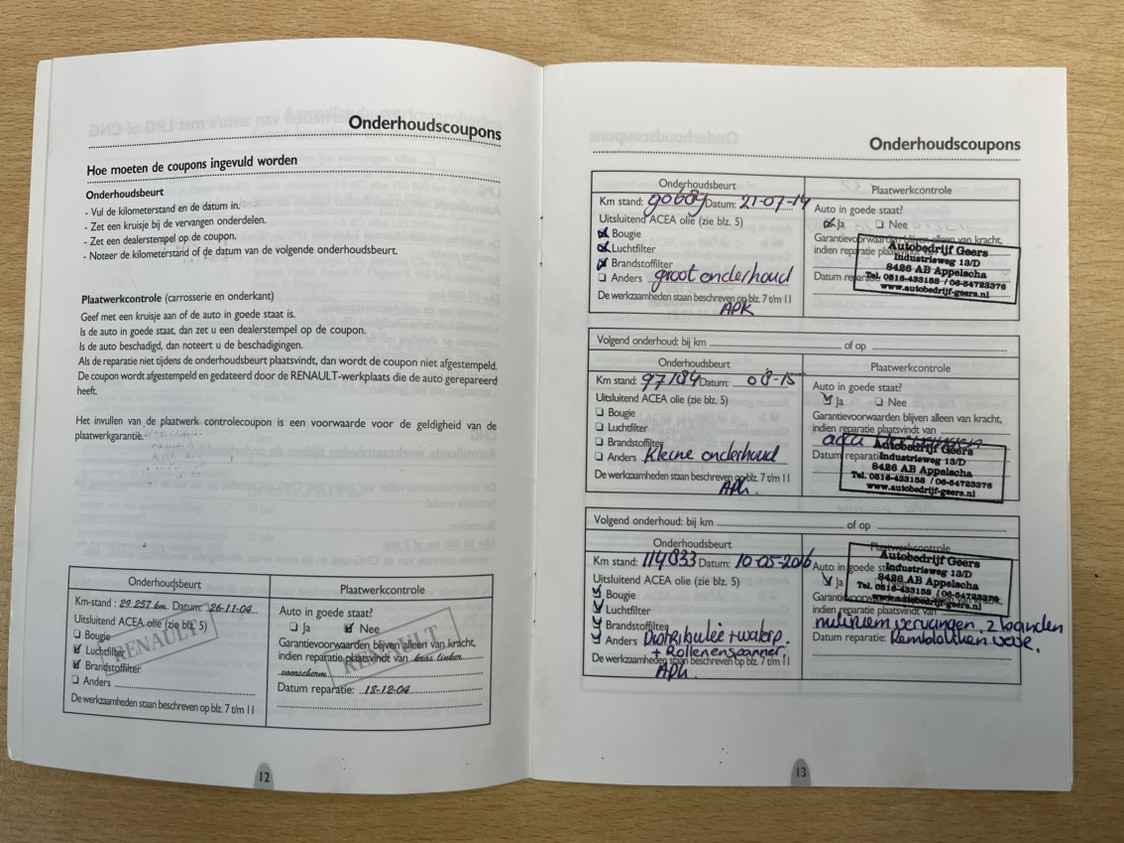 Onderhoudscoupons
Hoe moeten de coupons ingevuld worden
Onderhoudsbeurt
- Vul de kilometerstand en de datum in.
- Zet een kruisje bij de vervangen onderdelen.
- Zet een dealerstempel op de coupon.
- Noteer de kilometerstand of de datum van de volgende onderhoudsbeurt.
Plaatwerkcontrole (carrosserie en onderkant)
Geef met een kruisje aan of de auto in goede staat is.
Is de auto in goede staat, dan zet u een dealerstempel op de coupon.
Is de auto beschadigd, dan noteert u de beschadigingen.
Als de reparatie niet tijdens de onderhoudsbeurt plaatsvindt, dan wordt de coupon niet afgestempeld.
De coupon wordt afgestempeld en gedateerd door de RENAULT-werkplaats die de auto gerepareerd
heeft.
Het invullen van de plaatwerk controlecoupon is een voorwaarde voor de geldigheid van de
plaatwerkgarantie.
Onderhoudsbeurt
Km-stand : 29 257 km Datum: 26-11-04
Uitsluitend ACEA olie (zie blz. 5)
Bougie
Luchtfilter
Brandstoffilter
Anders
De werkzaamheden staan beschreven op blz. 7 t/m 11
RENAULT
Plaatwerkcontrole
Auto in goede staat?
Ja Nee
Garantievoorwaarden blijven alleen van kracht,
indien reparatie plaatsvindt van kras linker
voorscherm
Datum reparatie: 18-12-04
RENAULT
12
Onderhoudscoupons
Onderhoudsbeurt
Km stand: 90689 Datum: 21-07-14
Uitsluitend ACEA olie (zie blz. 5)
Bougie
Luchtfilter
Brandstoffilter
Anders groot onderhoud
De werkzaamheden staan beschreven op blz. 7 t/m 11
APK
Plaatwerkcontrole
Auto in goede staat?
Ja Nee
Garantievoorwaarden blijven alleen van kracht,
indien reparatie plaatsvindt
Datum reparatie
Autobedrijf Geers
Industrieweg 13/D
8426 AB Appelscha
Tel. 0516-433158 / 06-54723376
www.autobedrijf-geers.nl
Volgend onderhoud: bij km of op
Onderhoudsbeurt
Km stand: 97184 Datum: 08-15
Uitsluitend ACEA olie (zie blz. 5)
Bougie
Luchtfilter
Brandstoffilter
Anders Kleine onderhoud
De werkzaamheden staan beschreven op blz. 7 t/m 11
APK.
Plaatwerkcontrole
Auto in goede staat?
Ja Nee
Garantievoorwaarden blijven alleen van kracht,
indien reparatie plaatsvindt van
accu
Datum reparatie
Autobedrijf Geers
Industrieweg 13/D
8426 AB Appelscha
Tel. 0516-433158 / 06-54723376
www.autobedrijf-geers.nl
Volgend onderhoud: bij km of op
Onderhoudsbeurt
Km stand: 114833 Datum: 10-05-2016
Uitsluitend ACEA olie (zie blz. 5)
Bougie
Luchtfilter
Brandstoffilter
Anders Distributie + waterp.
+ Rollen en spanner
De werkzaamheden staan beschreven op blz. 7 t/m 11
APK.
Plaatwerkcontrole
Auto in goede staat?
Ja
indien reparatie plaatsvindt van
vervangen, 2 banden
Datum reparatie: Remblokken
Autobedrijf Geers
Industrieweg 13/D
8426 AB Appelscha
Tel. 0516-433158 / 06-54723376
www.autobedrijf-geers.nl
13